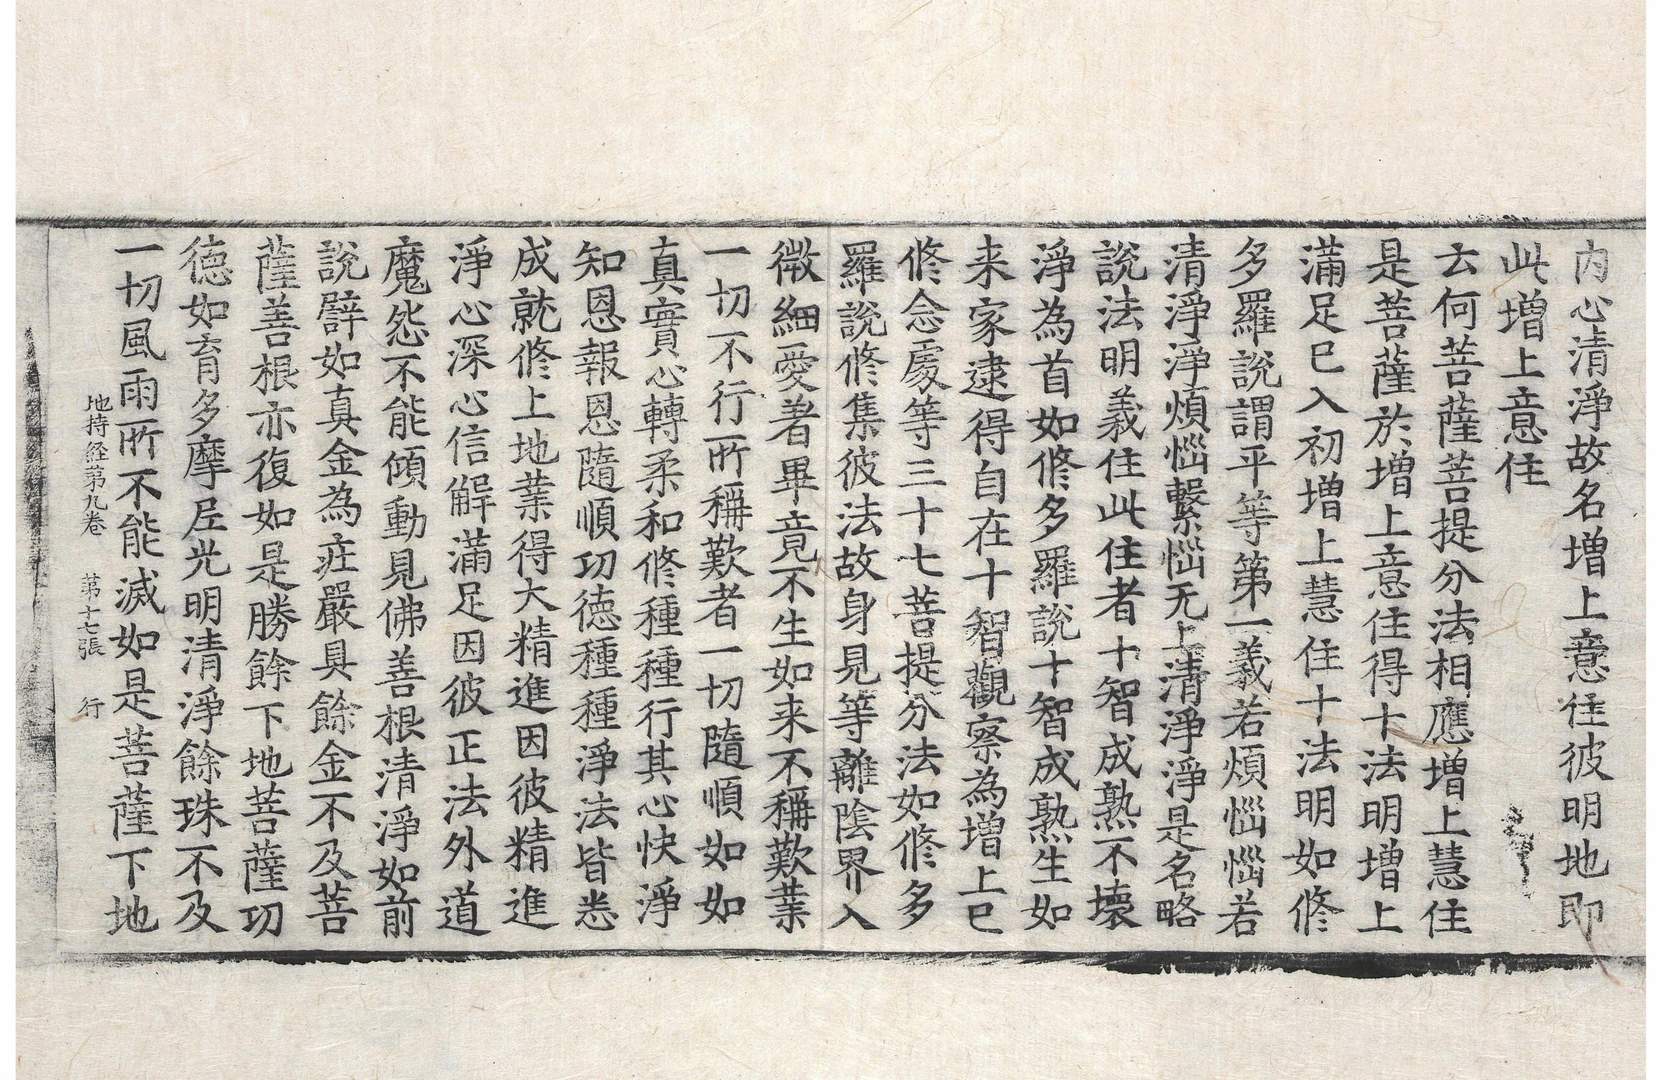 内心清淨故名増上意住彼明地即
此増上意住
云何菩薩菩提分法相應増上慧住
是菩薩於増上意住得十法明増上
滿足已入初増上慧住十法明如修
多羅說謂平等第一義若煩惱惱若
清淨淨煩惱繫惱无上清淨淨是名略
說法明義住此住者十智成熟不壞
淨為首如修多羅說十智成熟生如
来家逮得自在十智觀察為増上已
修念處等三十七菩提分法如修多
羅說修集彼法故身見等離陰界入
微細愛著畢竟不生如来不稱歎業
一切不行所稱歎者一切隨順如如
真實心轉柔和修種種行其心快淨
知恩報恩隨順功德種種淨法皆悉
成就修上地業得大精進因彼精進
淨心深心信解滿足因彼正法外道
魔怨不能傾動見佛善根清淨如前
說譬如真金為莊嚴具餘金不及菩
薩善根亦復如是勝餘下地菩薩功
德如有多摩尼光明清淨餘珠不及
一切風雨所不能滅如是菩薩下地
地持経第九巻　第十七張　行